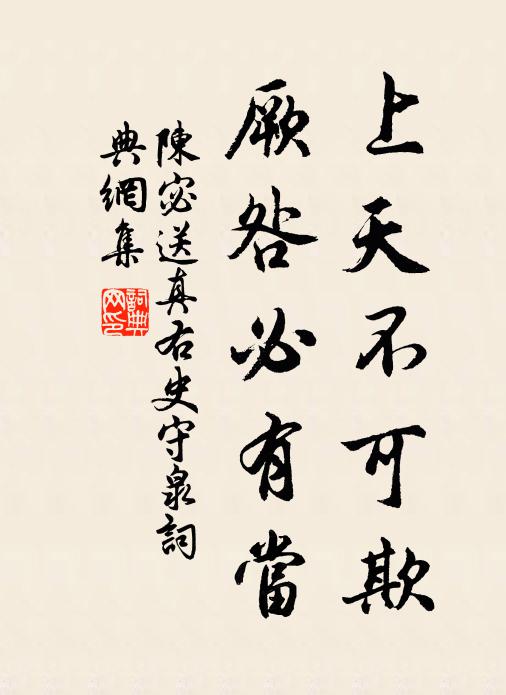 上天不可欺
厥咎必有當
陳宓送真右史守泉詞
典網集
詞典
网印